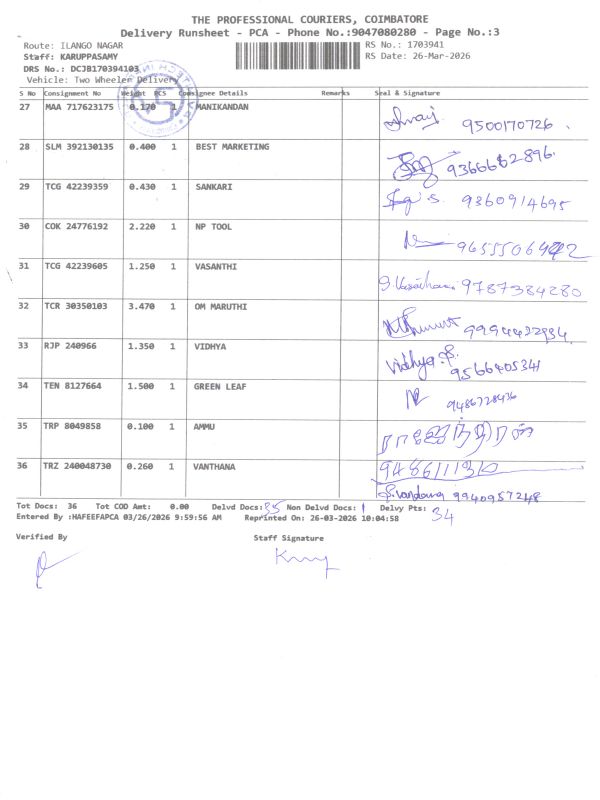 THE PROFESSIONAL COURIERS, COIMBATORE
Delivery Runsheet - PCA - Phone No.:9047080280 - Page No.:3
Route: ILANGO NAGAR RS No.: 1703941
Staff: KARUPPASAMY RS Date: 26-Mar-2026
DRS No.: DCJB170394103
Vehicle: Two Wheeler Delivery
S No Consignment No Weight PCS Consignee Details Remarks Seal & Signature
27 MAA 717623175 0.170 1 MANIKANDAN 9500170726
28 SLM 392130135 0.400 1 BEST MARKETING 9366662896
29 TCG 42239359 0.430 1 SANKARI 9360914695
30 COK 24776192 2.220 1 NP TOOL
31 TCG 42239605 1.250 1 VASANTHI 9787384280
32 TCR 30350103 3.470 1 OM MARUTHI
33 RJP 240966 1.350 1 VIDHYA Vidhya.S. 9566405341
34 TEN 8127664 1.500 1 GREEN LEAF 9486728436
35 TRP 8049858 0.100 1 AMMU
36 TRZ 240048730 0.260 1 VANTHANA S.Vandana 9940957248
Tot Docs: 36 Tot COD Amt: 0.00 Delvd Docs: 35 Non Delvd Docs: 1 Delvy Pts: 34
Entered By :HAFEEFAPCA 03/26/2026 9:59:56 AM Reprinted On: 26-03-2026 10:04:58
Verified By Staff Signature